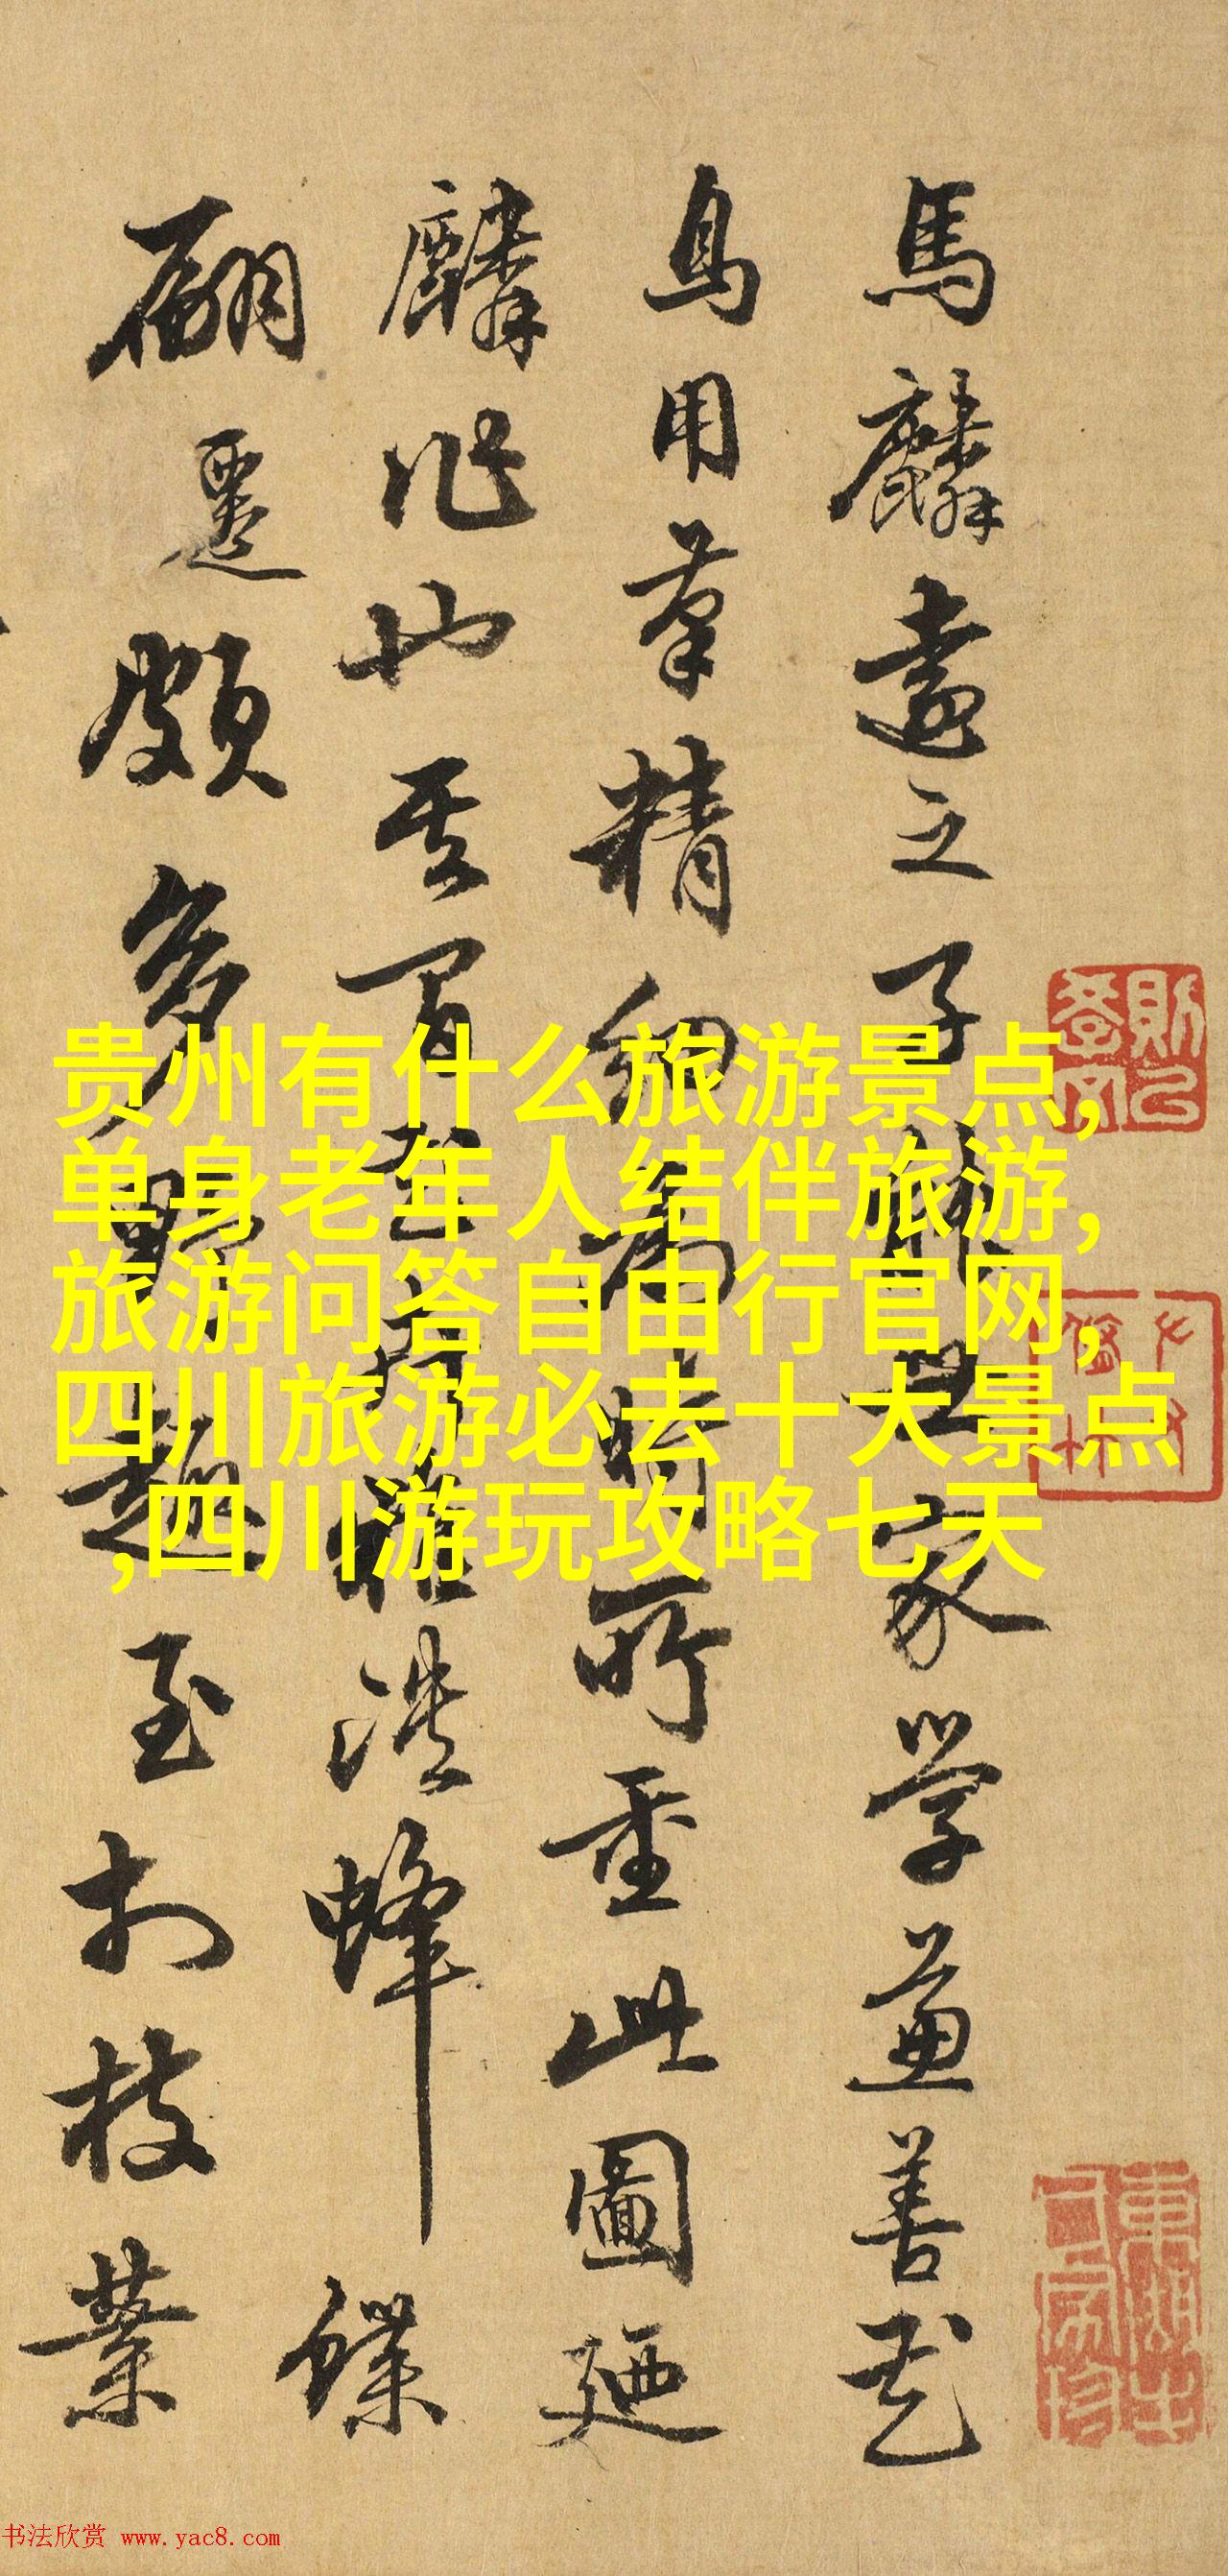 馬麟遠之子能世家學善花
鳥用筆精細為時所重此圖廼
麟作也其間蜂蝶
翩遷頗多野趣至於枝葉
贵州有什么旅游景点,
单身老年人结伴旅游,
旅游问答自由行官网,
四川旅游必去十大景点
,四川游玩攻略七天
书法欣赏 www.yac8.com